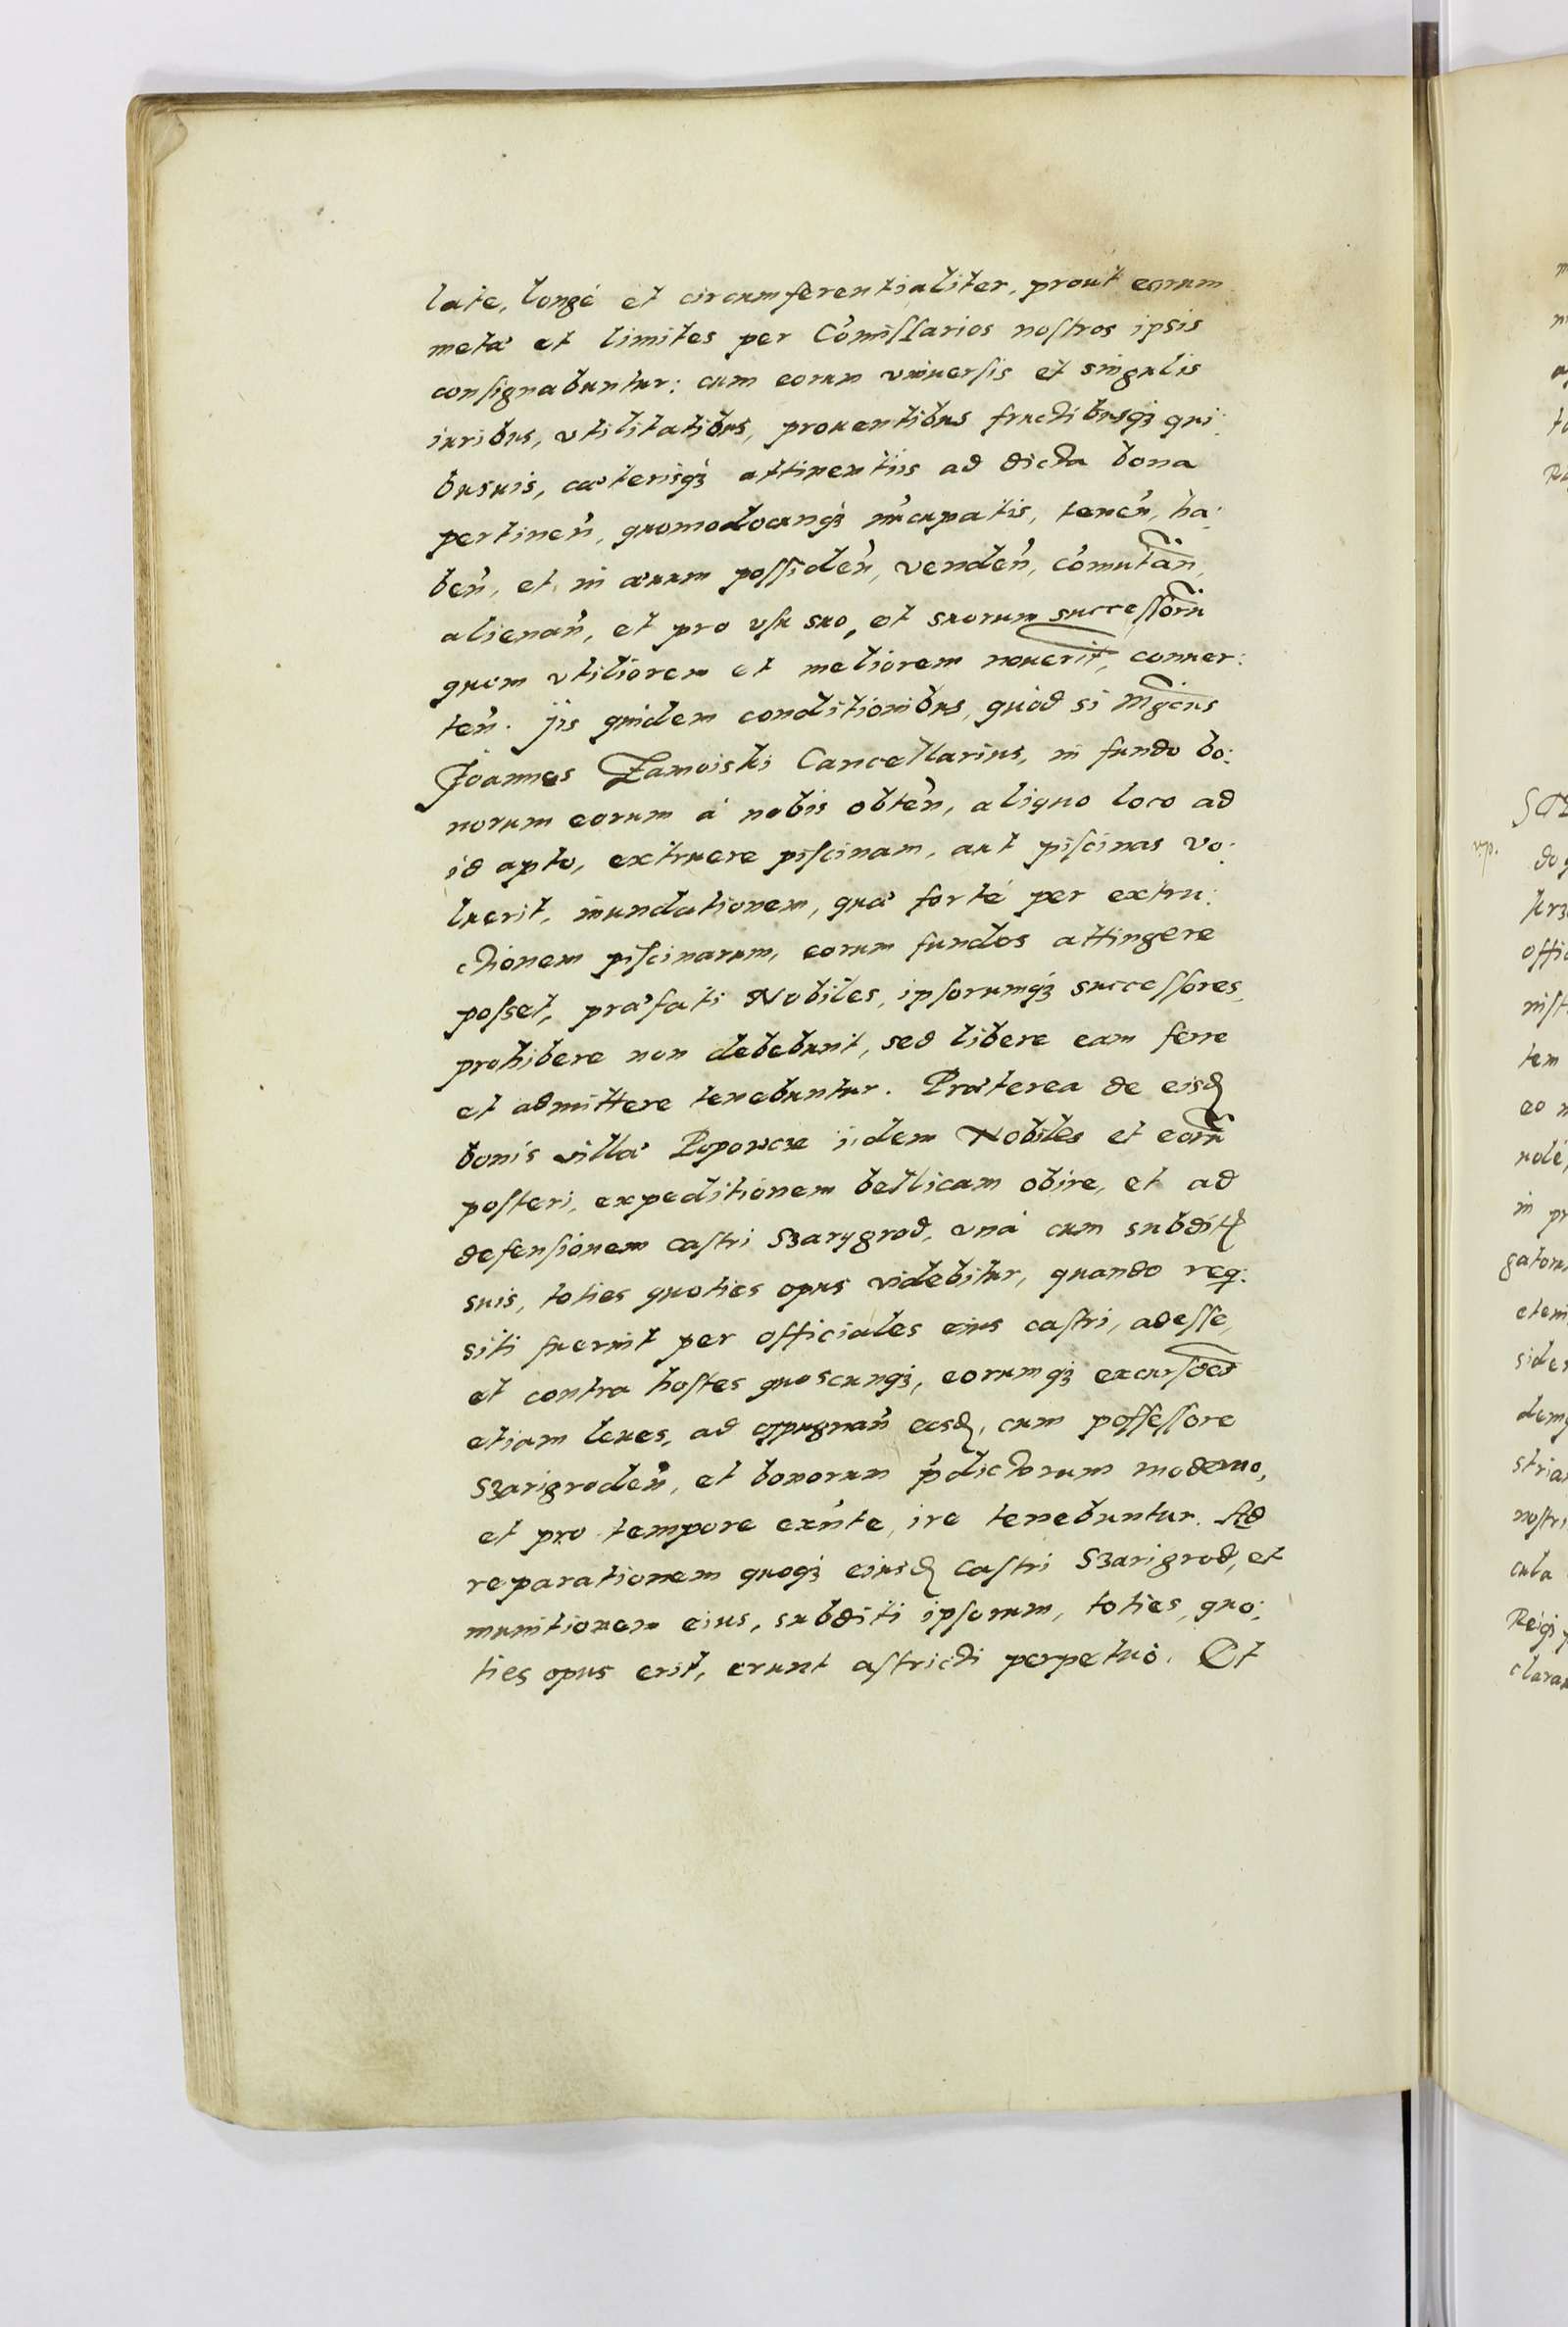 late, longè et circumferentialiter, prout eorum
metæ et limites per Com̃issarios nostros ipsis
consignabuntur: cum eorum vniuersis et singulis
iuribus, vtilitatibus, prouentibus fructibusq́ꝫ qui:
busuis, cæterisq́ꝫ attinentiis ad dicta bona
pertineñ, quomodocunq́ꝫ nũcupatis, teneñ, ha:
beñ, et in æuum possideñ, vendeñ, com̃utañ,
alienañ, et pro vsu suo, et suorum successorũ
quem vtiliorem et meliorem nouerit, conuer:
teñ. Jis quidem conditionibus, quòd si Mg̃cus
Joannes Zamoiski Cancellarius, in fundo bo:
norum eorum à nobis obteñ, aliquo loco ad
id apto, extruere piscinam, aut piscinas vo:
luerit, inundationem, quæ fortè per extru:
ctionem piscinarum, eorum fundos attingere
posset, præfati Nobiles, ipsorumq́ꝫ successores,
prohibere non debebunt, sed libere eam ferre
et admittere tenebuntur. Præterea de eisd
bonis villæ Popowcze iidem Nobiles et eorũ
posteri, expeditionem bellicam obire, et ad
defensionem castri Szarygrod, vnà cum subdit
suis, toties quoties opus videbitur, quando req:
siti fuerint per officiales eius castri, adesse,
et contra hostes quoscunqꝫ, eorumqꝫ excursões
etiam leues, ad oppugnañ eosd, cum possessore
Szarigrodeñ, et bonorum p̃dictorum moderno,
et pro tempore exñte, ire tenebuntur. Ad
reparationem quoqꝫ eiusd castri Szarigrod, et
munitionem eius, subditi ipsorum, toties, quo:
ties opus erit, erunt astricti perpetuò. Et